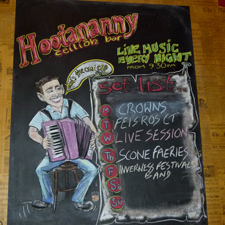 Hootananny
LIVE MUSIC
EVERY NIGHT
FROM 9.30PM
SET LIST
M
T
W
T
F
S
S
CROWNS
FEIS ROS CT
LIVE SESSION
SCONE FAERIES
INVERNESS FESTIVALS
BAND